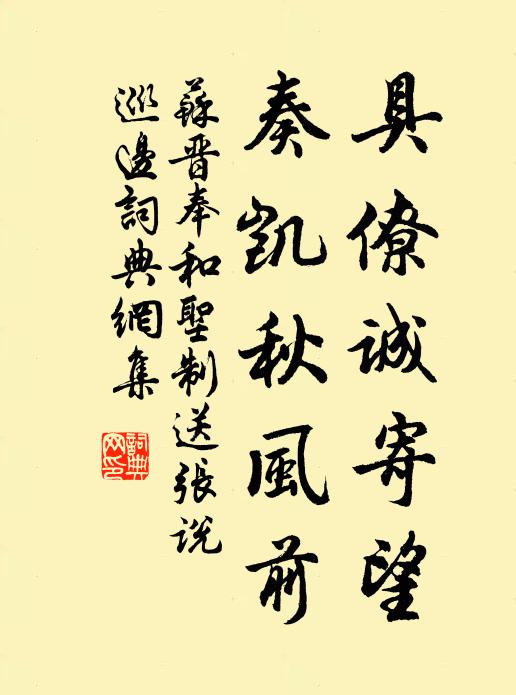 具僚誠寄望
奏凱秋風前
蘇晋奉和聖制送張說
巡邊詞典網集
詞典
网印